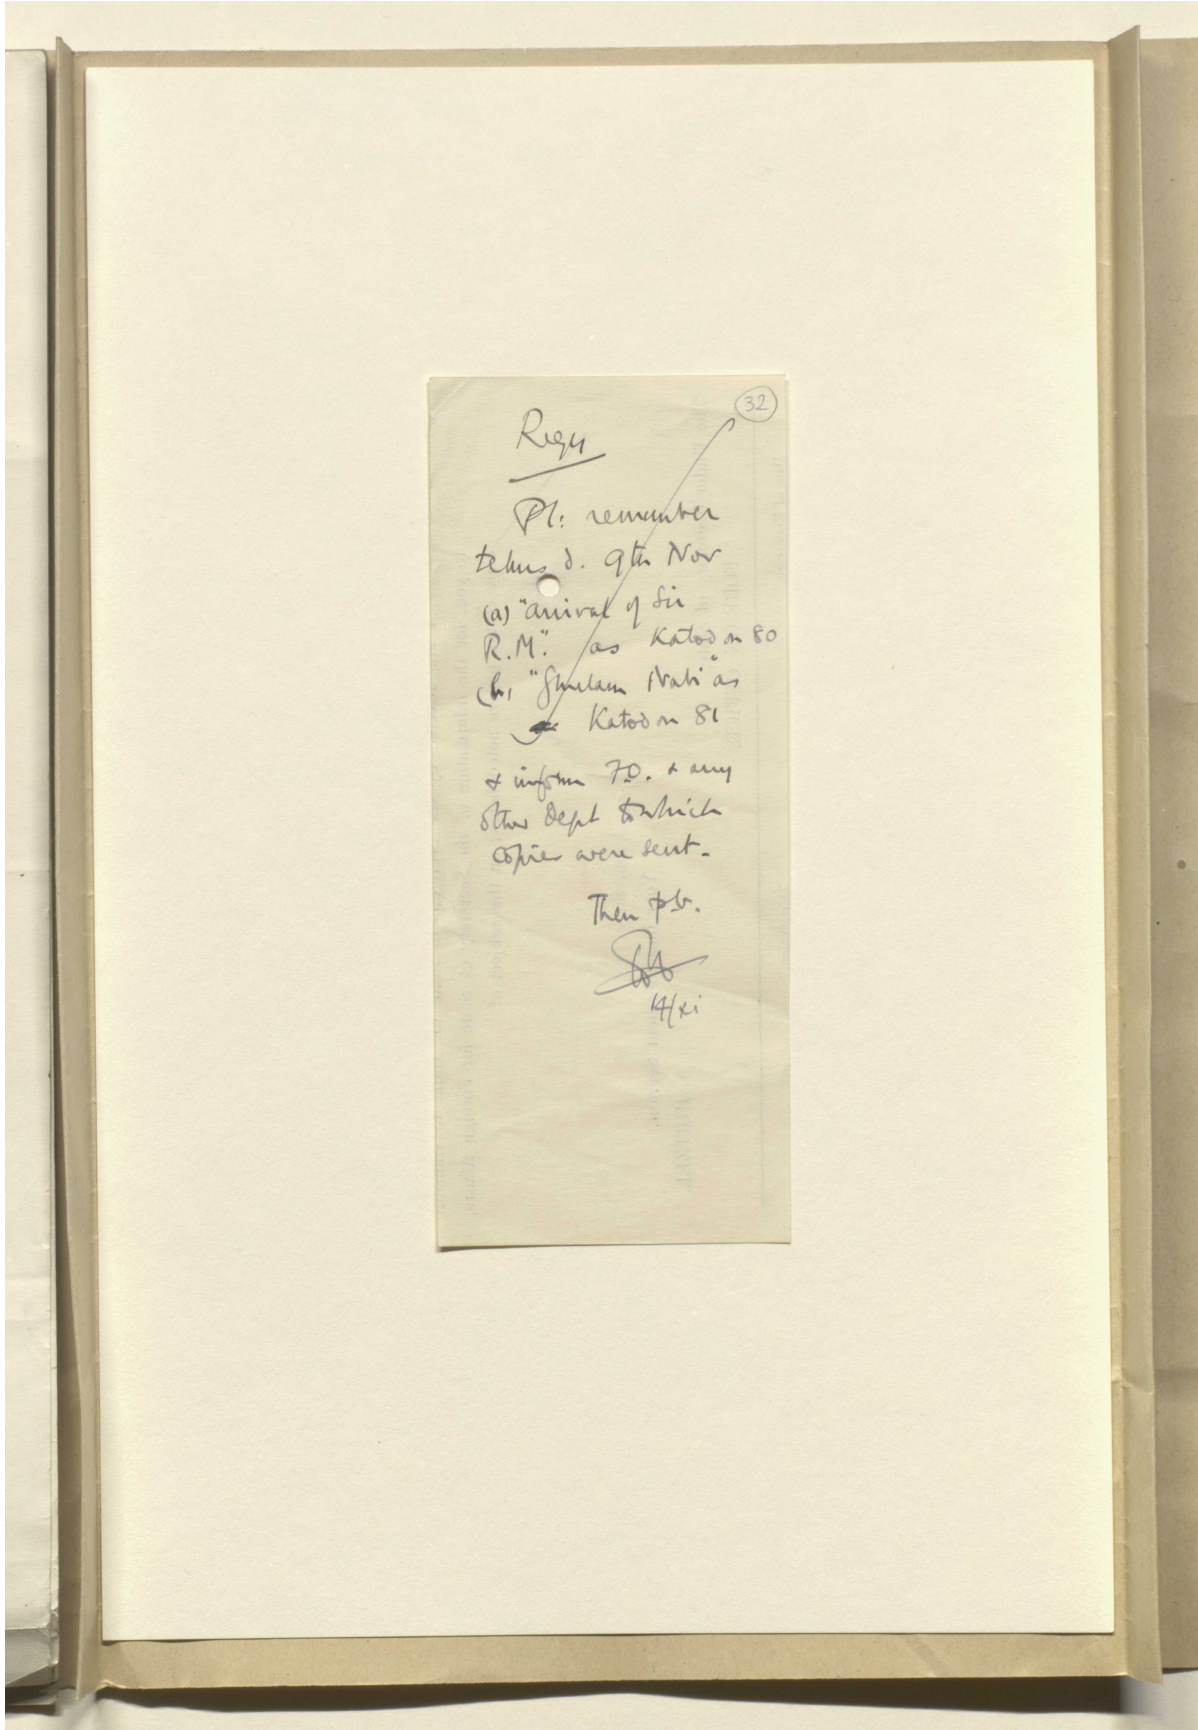 32
Regy
Pl: remember
telms d. 9th Nov
(a) "arrival of Sir
R.M." as Katodon 80
(b) "Ghulam Nabi" as
Katodon 81
& inform F.O. & any
other Dept to which
copies were sent.
Then p.b.
14/xi